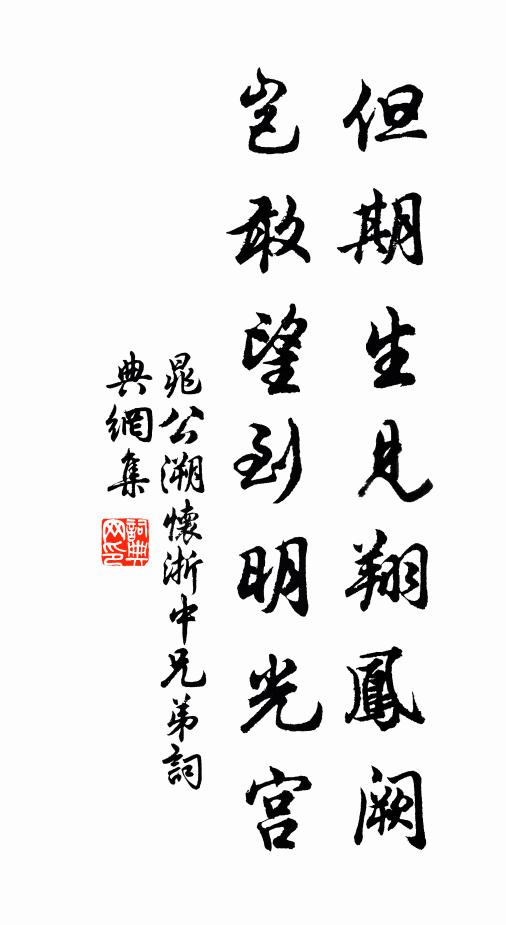 但期生見翔鳳闕
豈敢望到明光宮
晁公溯懷浙中兄弟詞
典網集
詞典
网印